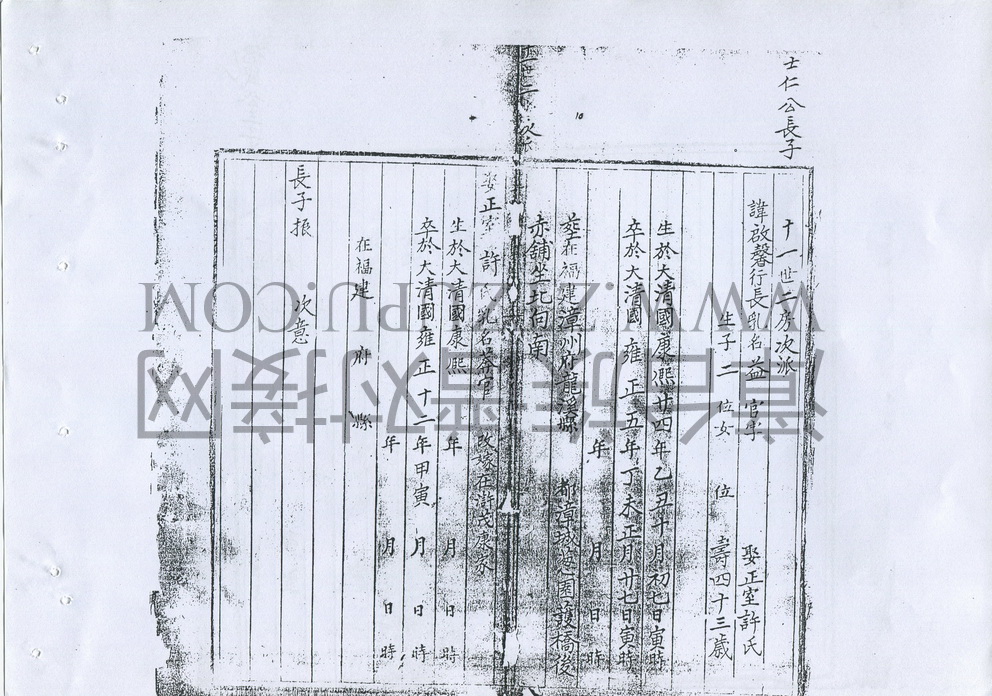 士仁公長子
十一世二房次派
諱啟馨行長乳名益 官字 娶正室許氏
生子二 位女 位 壽四十三歲
生於大清國康熙廿四年乙丑年 月初七日寅時
卒於大清國 雍 正 五年丁未正月廿七日寅時
年 月 日 時
葬在福建漳州府龍溪縣 都漳城 園護橋後
赤舖坐北向南
娶正室 許氏乳名 官
生於大清國康熙 年 月 日 時
卒於大清國雍 正 十二年甲寅 月 日 時
年 月 日 時
在福建 府 縣
長子振 次意
WWW.ZUPU.COM